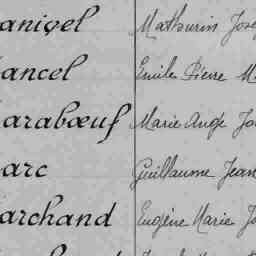 anivel Mathurin Jose
ancel Emile Pierre M
arabœuf Marie Ange Jo
arc Guillaume Jean
archand Eugène Marie Jo